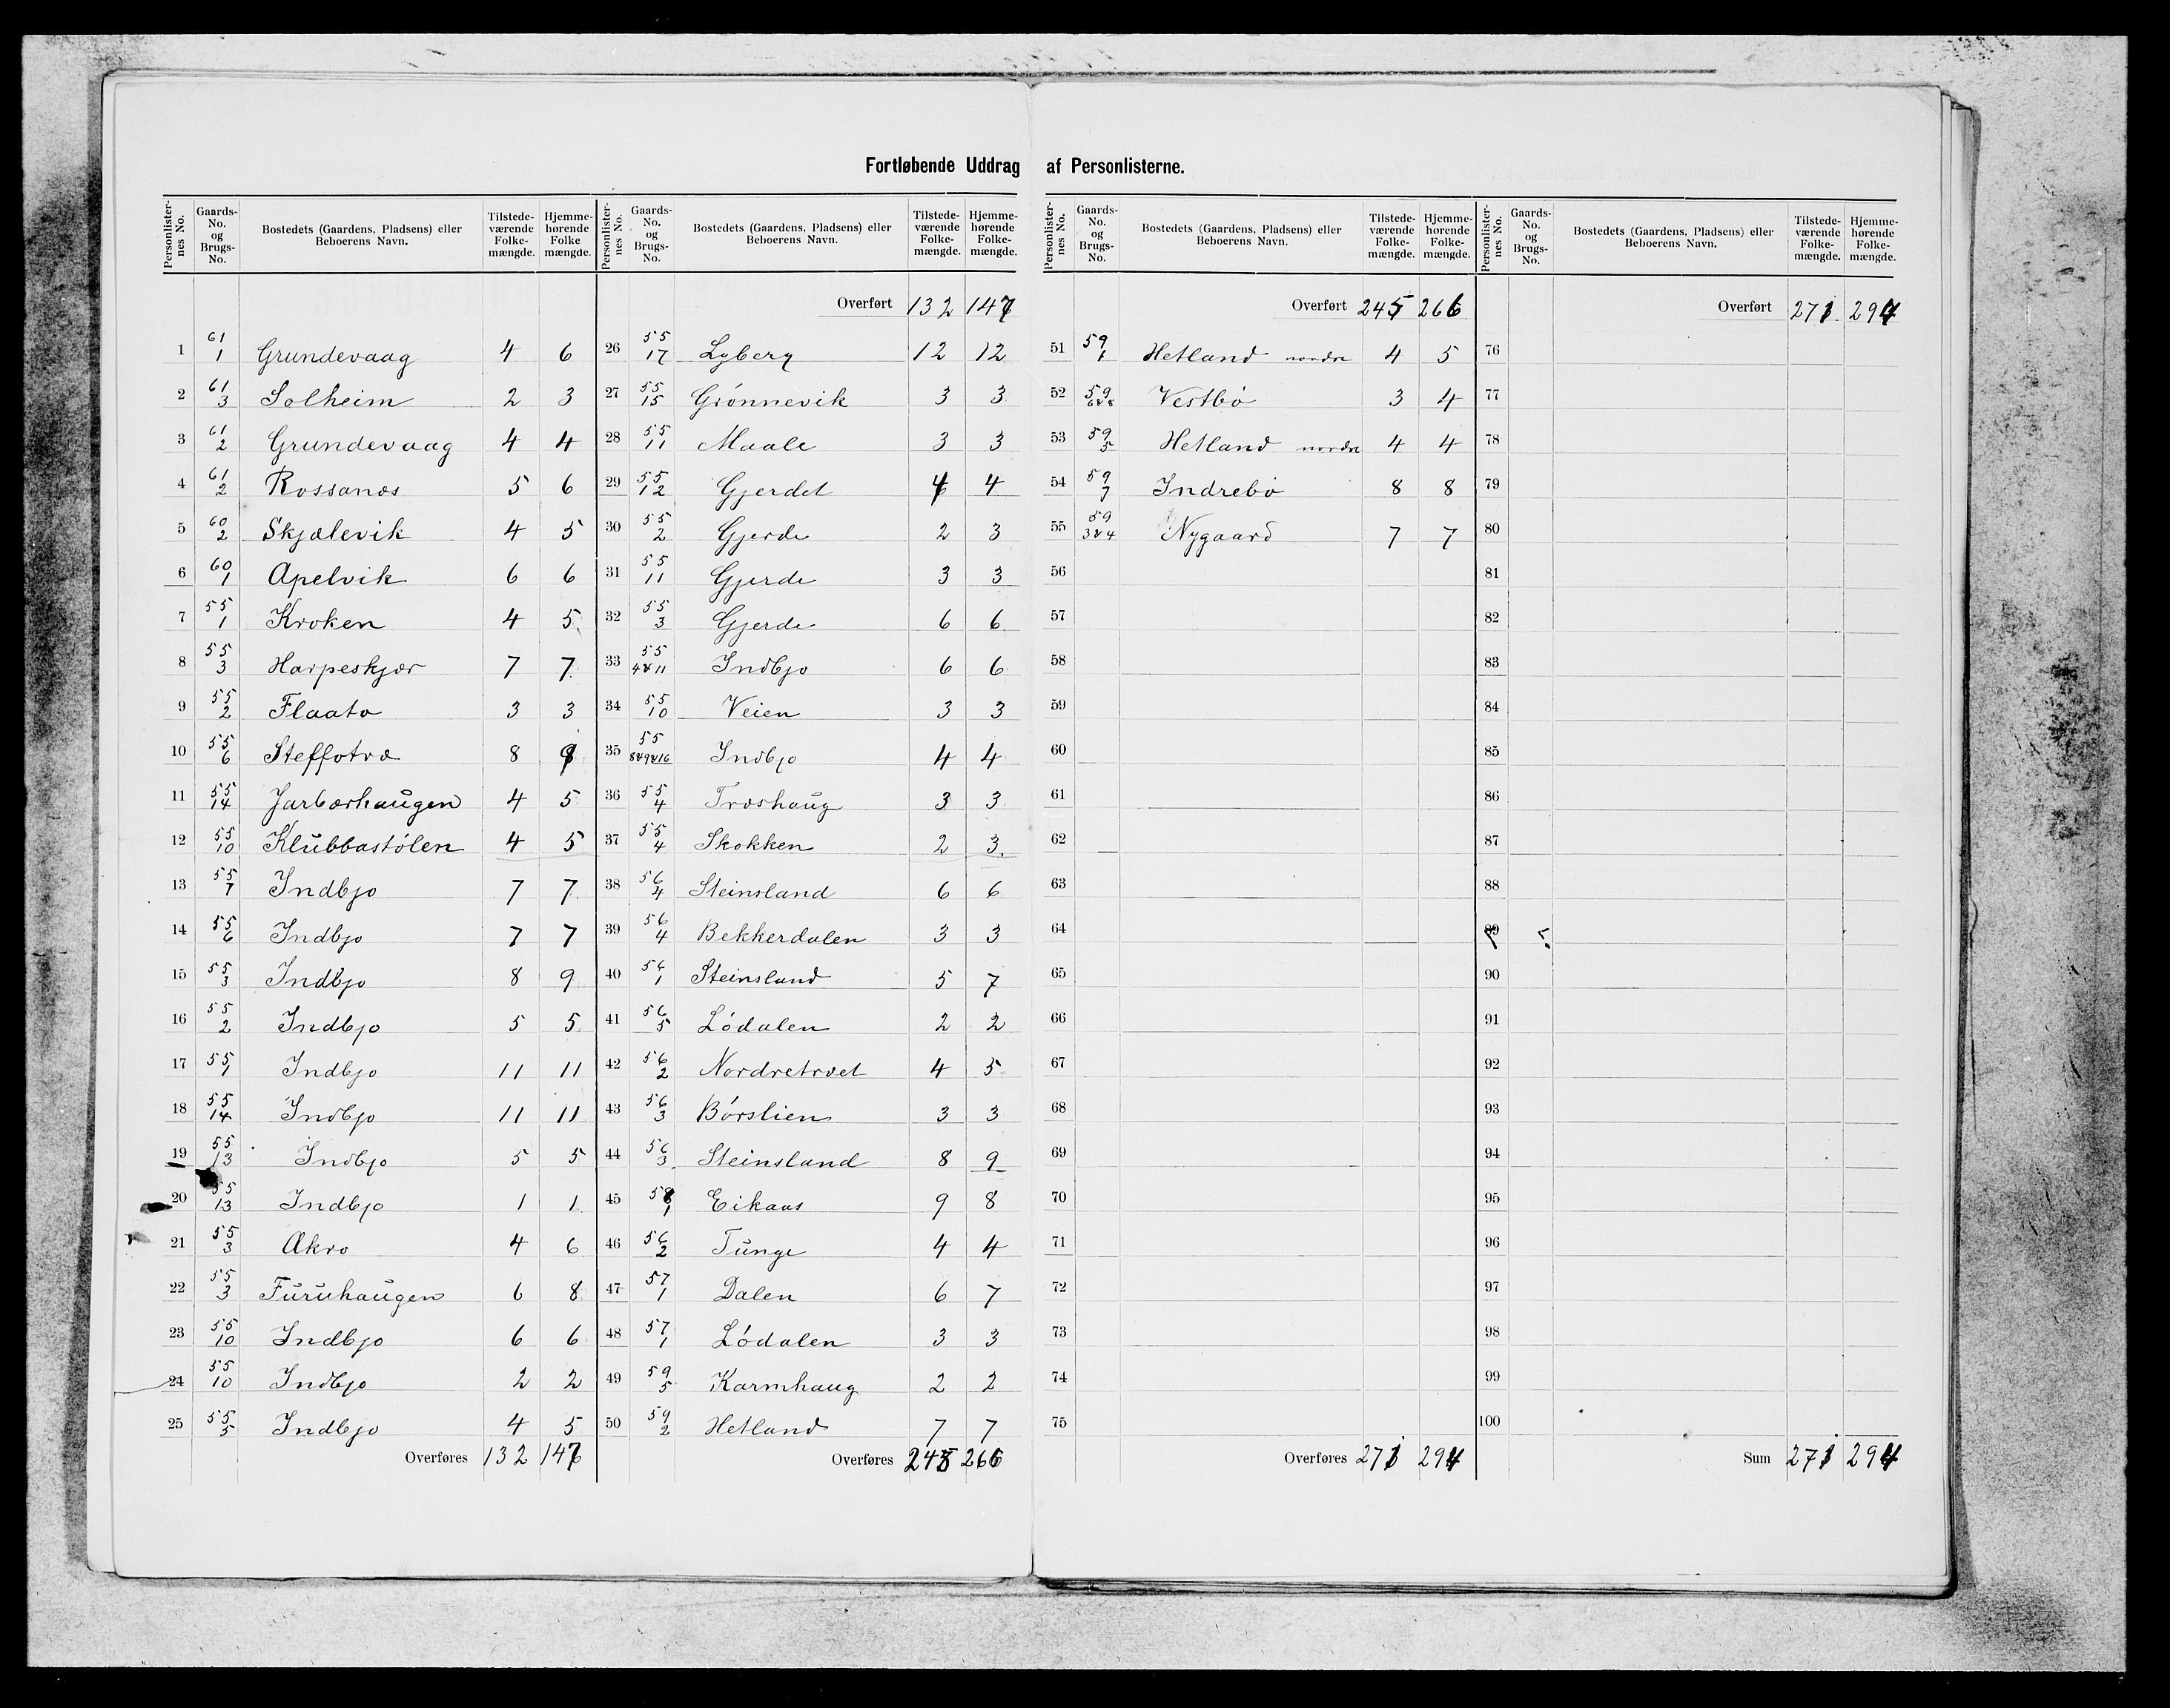 Fortløbende Uddrag af Personlisterne.
Personlisternes No. Gaards-No. og Brugs-No. Bostedets (Gaardens, Pladsens) eller Beboerens Navn. Tilstedeværende Folkemængde. Hjemmehørende Folke mængde.
1 61/1 Grundevaag 4 6
2 61/3 Solheim 2 3
3 61/2 Grundevaag 4 4
4 61/2 Rossanes 5 6
5 60/2 Skjælevik 4 5
6 60/1 Apelvik 6 6
7 55/1 Kroken 4 5
8 55/3 Harpeskjær 7 7
9 55/2 Flaato 3 3
10 55/6 Steffotræ 8
11 55/14 Jarbærhaugen 4 5
12 55/10 Klubbastølen 4 5
13 55/7 Indbjo 7 7
14 55/6 Indbjo 7 7
15 55/3 Indbjo 8 9
16 55/2 Indbjo 5 5
17 55/1 Indbjo 11 11
18 55/14 Indbjo 11 11
19 55/13 Indbjo 5 5
20 55/13 Indbjo 1 1
21 55/3 Akro 4 6
22 55/3 Furuhaugen 6 8
23 55/10 Indbjo 6 6
24 55/10 Indbjo 2 2
25 55/5 Indbjo 4 5
Overføres 132
Personlisternes No. Gaards-No. og Brugs-No. Bostedets (Gaardens, Pladsens) eller Beboerens Navn. Tilstedeværende Folkemængde. Hjemmehørende Folkemængde.
Overført 132
26 55/17 Lyberg 12 12
27 55/15 Grønnevik 3 3
28 55/11 Maale 3 3
29 55/12 Gjerdet 4 4
30 55/2 Gjerde 2 3
31 55/11 Gjerde 3 3
32 55/3 Gjerde 6 6
33 55/4&11 Indbjo 6 6
34 55/10 Veien 3 3
35 55/8&9&16 Indbjo 4 4
36 55/4 Træshaug 3 3
37 55/4 Skokken 2 3
38 56/4 Steinsland 6 6
39 56/4 Bekkerdalen 3 3
40 56/1 Steinsland 5 7
41 56/5 Lødalen 2 2
42 56/2 Nordretræet 4 5
43 56/3 Børslien 3 3
44 56/3 Steinsland 8 9
45 58/1 Eikaas 9 8
46 56/2 Tunge 4 4
47 57/1 Dalen 6 7
48 57/1 Lødalen 3 3
49 59/5 Karmhaug 2 2
50 59/2 Hetland 7 7
Overføres 245 266
Personlisternes No. Gaards-No. og Brugs-No. Bostedets (Gaardens, Pladsens) eller Beboerens Navn. Tilstedeværende Folkemængde. Hjemmehørende Folkemængde.
Overført 245 266
51 59/1 Hetland nordre 4 5
52 59/6&8 Vestbø 3 4
53 59/5 Hetland nordre 4 4
54 59/7 Indrebø 8 8
55 59/3&4 Nygaard 7 7
56
57
58
59
60
61
62
63
64
65
66
67
68
69
70
71
72
73
74
75
Overføres 271 294
Personlisternes No. Gaards-No. og Brugs-No. Bostedets (Gaardens, Pladsens) eller Beboerens Navn. Tilstedeværende Folkemængde. Hjemmehørende Folkemængde.
Overført 271 294
76
77
78
79
80
81
82
83
84
85
86
87
88
89
90
91
92
93
94
95
96
97
98
99
100
Sum 271 294